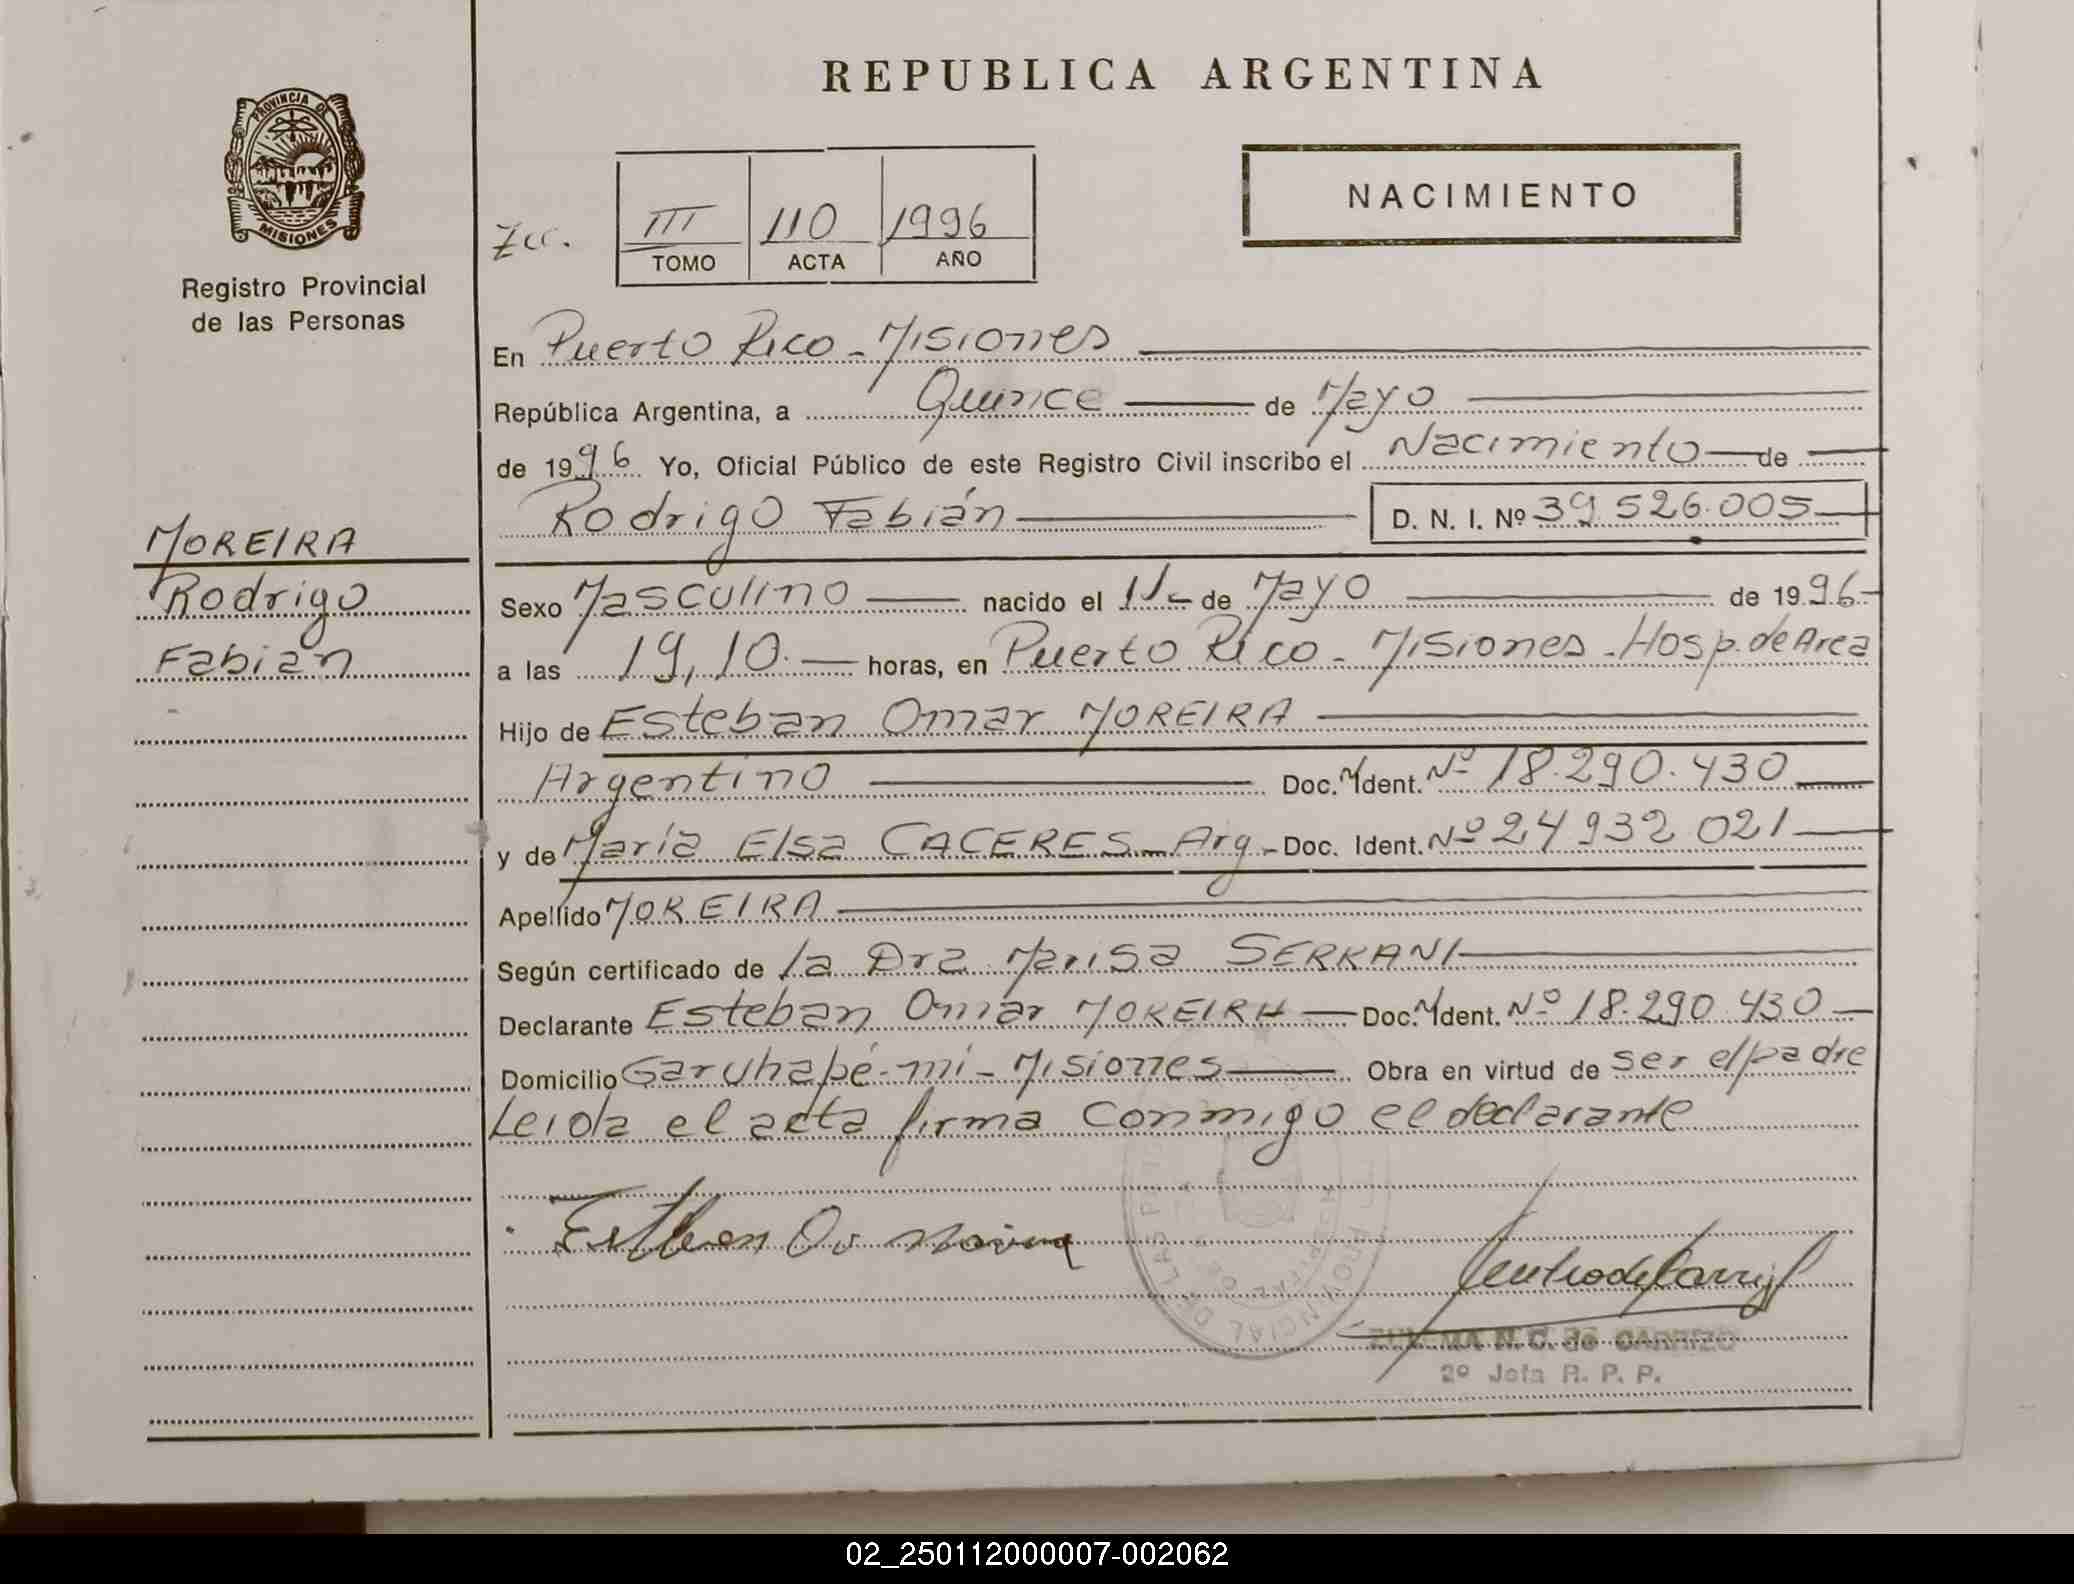 REPUBLICA ARGENTINA
PROVINCIA DE
MISIONES
Registro Provincial
de las Personas
NACIMIENTO
III 110 1996
TOMO ACTA AÑO
En Puerto Rico - Misiones
República Argentina, a Quince de Mayo
de 1996 Yo, Oficial Público de este Registro Civil inscribo el Nacimiento de
Rodrigo Fabián D. N. I. Nº 39.526.005
MOREIRA
Rodrigo
Fabián
Sexo Masculino nacido el 11 de Mayo de 1996
a las 19,10 horas, en Puerto Rico - Misiones - Hosp. de Area
Hijo de Esteban Omar MOREIRA
Argentino Doc. Ident. Nº 18.290.430
y de María Elsa CACERES - Arg - Doc. Ident. Nº 24 932 021
Apellido MOREIRA
Según certificado de la Dra Marisa
Declarante Esteban Omar MOREIRA Doc. Ident. Nº 18.290.430
Domicilio Garuhapé-mí - Misiones Obra en virtud de ser el padre
Leida el acta firma conmigo el declarante
N. C. de CARRIZO
2º Jefa R. P. P.
02_250112000007-002062